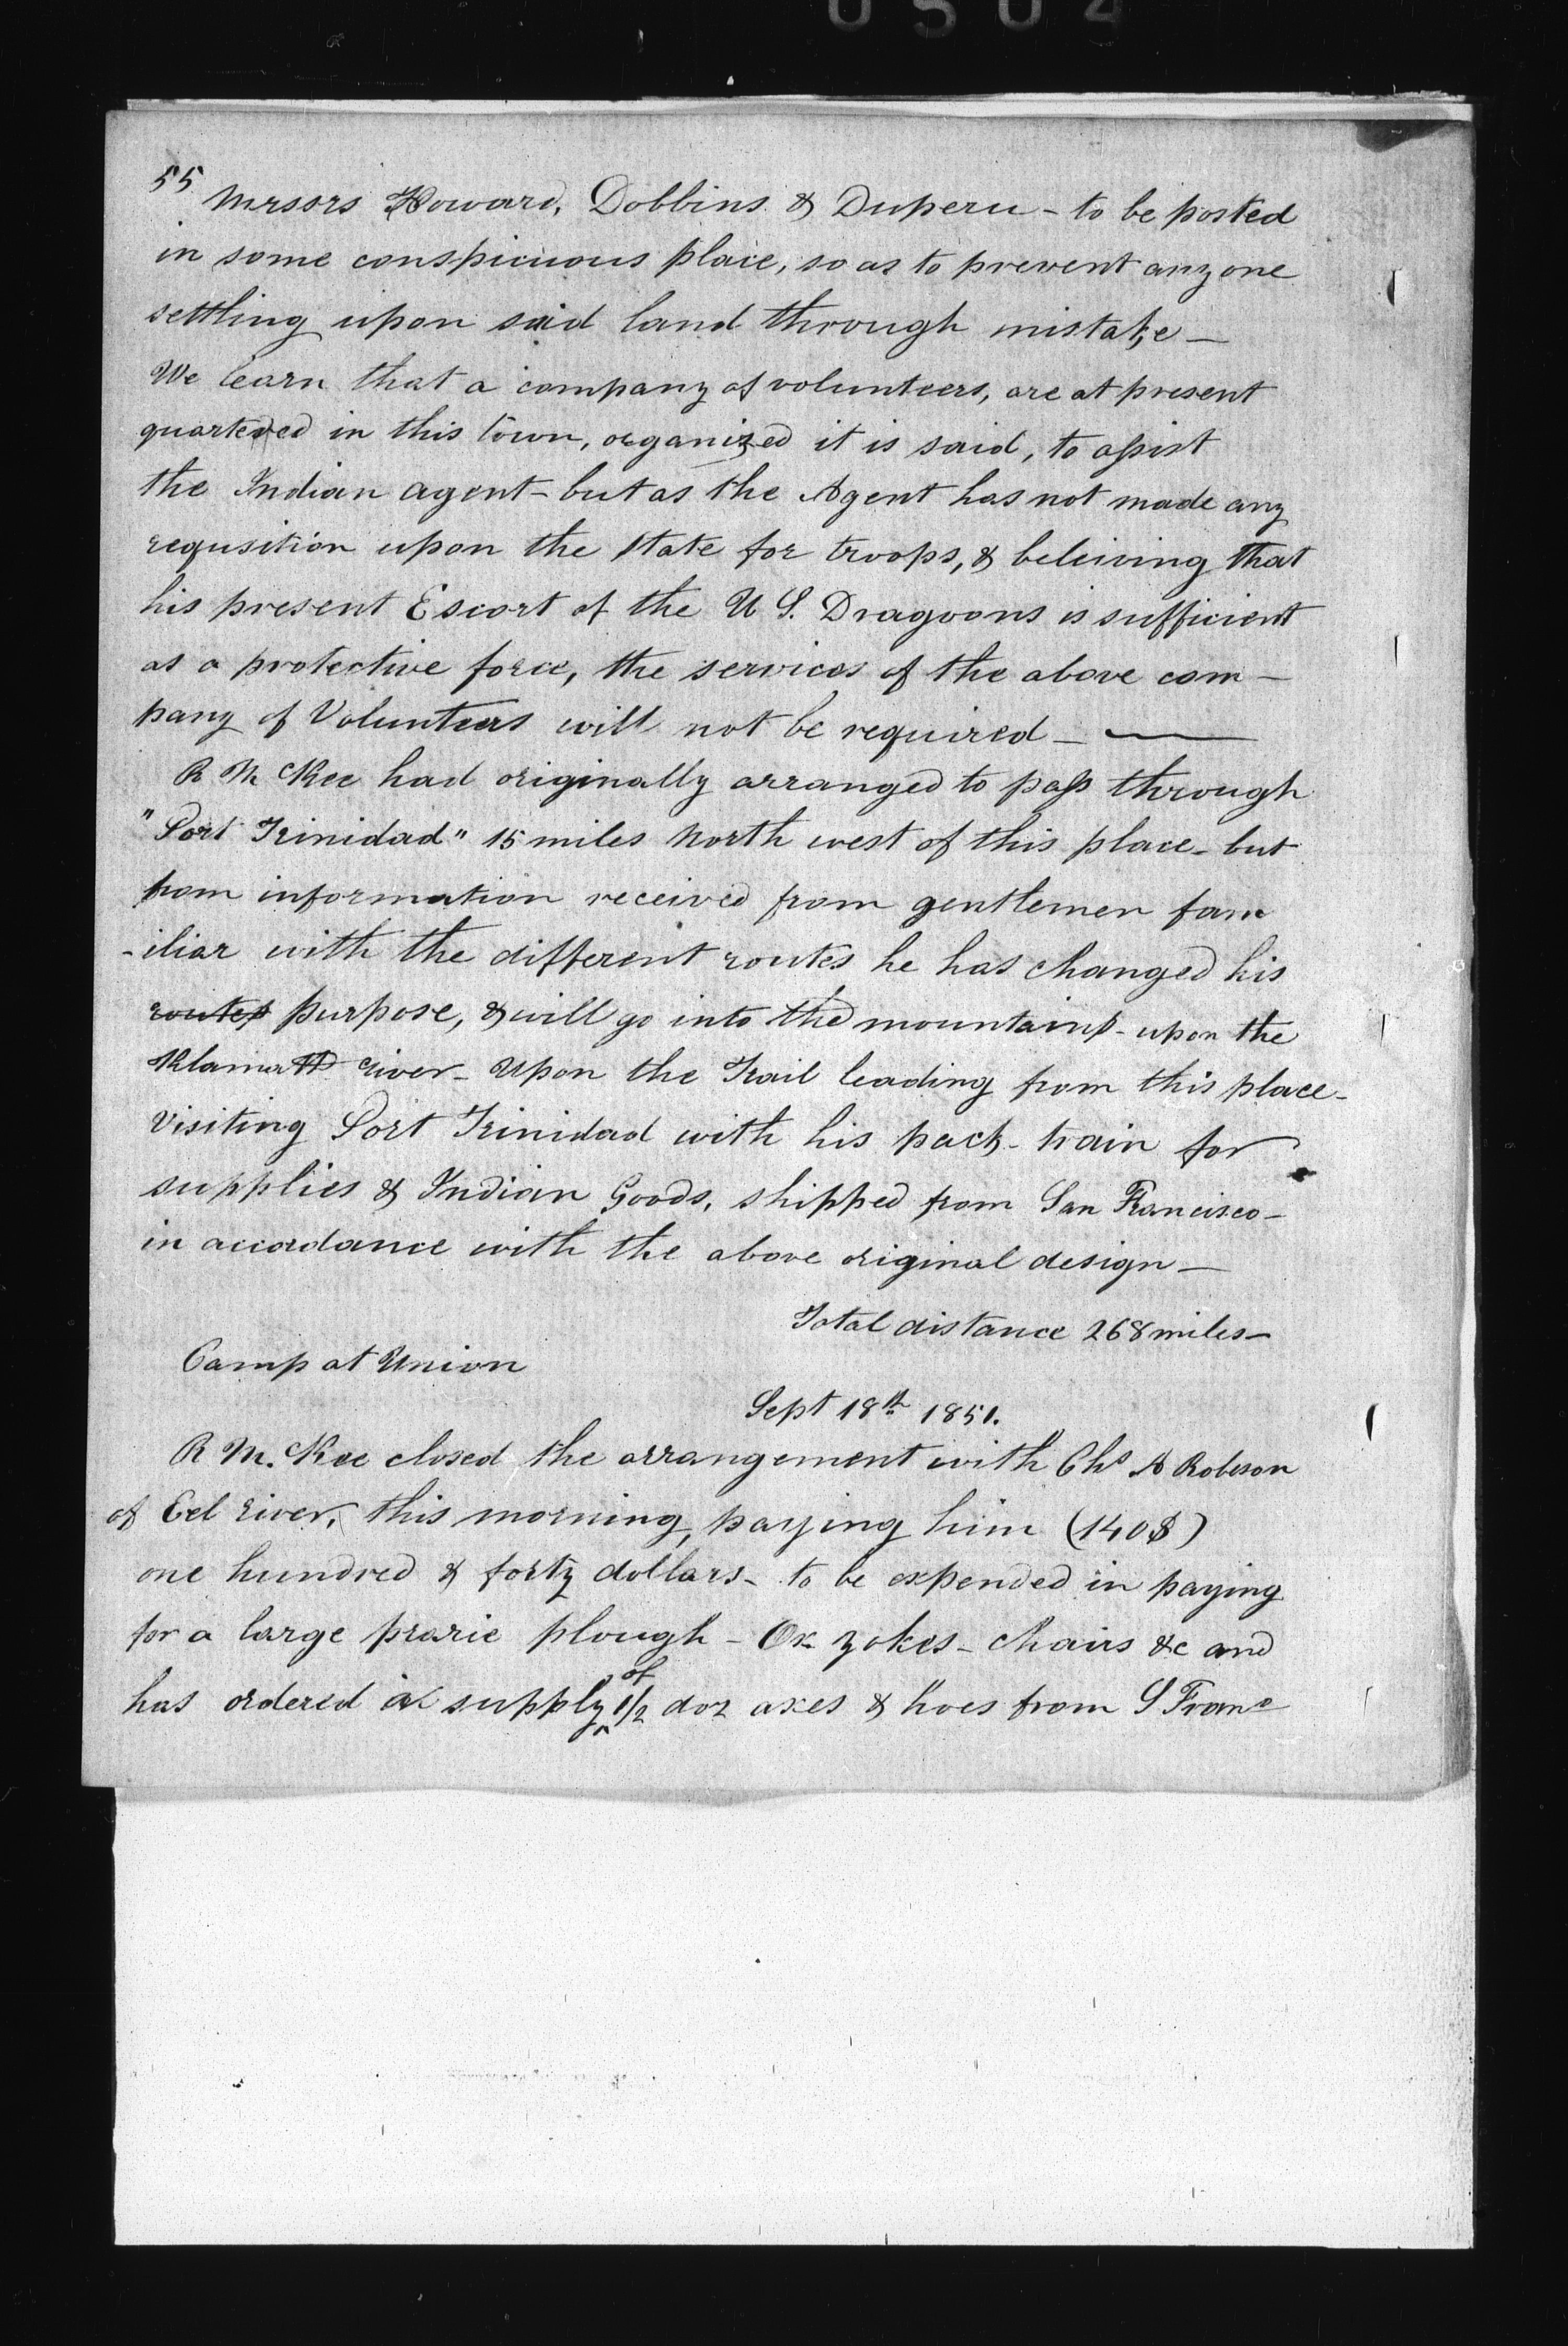 0504
55 Messrs Howard, Dobbins & Duperu - to be posted
in some conspicuous place, so as to prevent any one
settling upon said land through mistake -
We learn that a company of volunteers, are at present
quartered in this town, organized it is said, to assist
the Indian agent - but as the Agent has not made any
requsition upon the State for troops, & beleiving that
his present Escort of the U S. Dragoons is sufficient
as a protective force, the services of the above com -
pany of Volunteers will not be required -
R McKee had originally arranged to pass through
"Port Trinidad" 15 miles North west of this place - but
from information received from gentlemen fam
- iliar with the different routes he has changed his
routes purpose, & will go into the mountains - upon the
Klamath river - Upon the Trail leading from this place -
Visiting Port Trinidad with his pack - train for
supplies & Indian Goods, shipped from San Francisco -
in accordance with the above original design -
Total distance 268 miles -
Camp at Union
Sept 18th 1851.
R McKee closed the arrangement with Chs A Robeson
of Eel river, this morning, paying him (140$)
one hundred & forty dollars - to be expended in paying
for a large prarie plough - Ox yokes - chairs &c and
has ordered a supply of 1/2 doz axes & hoes from S Franc